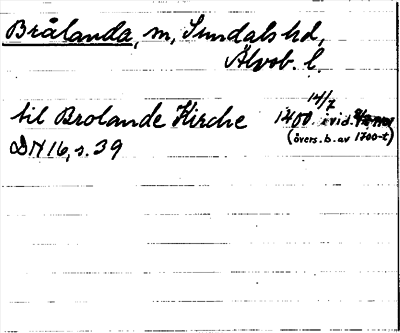 Brålanda, m, Sundals hd,
Älvsb. l.
14/7
til Brolande Kirche 1400. i vid.
(övers. b. av 1700-t)
DN 16, s. 39